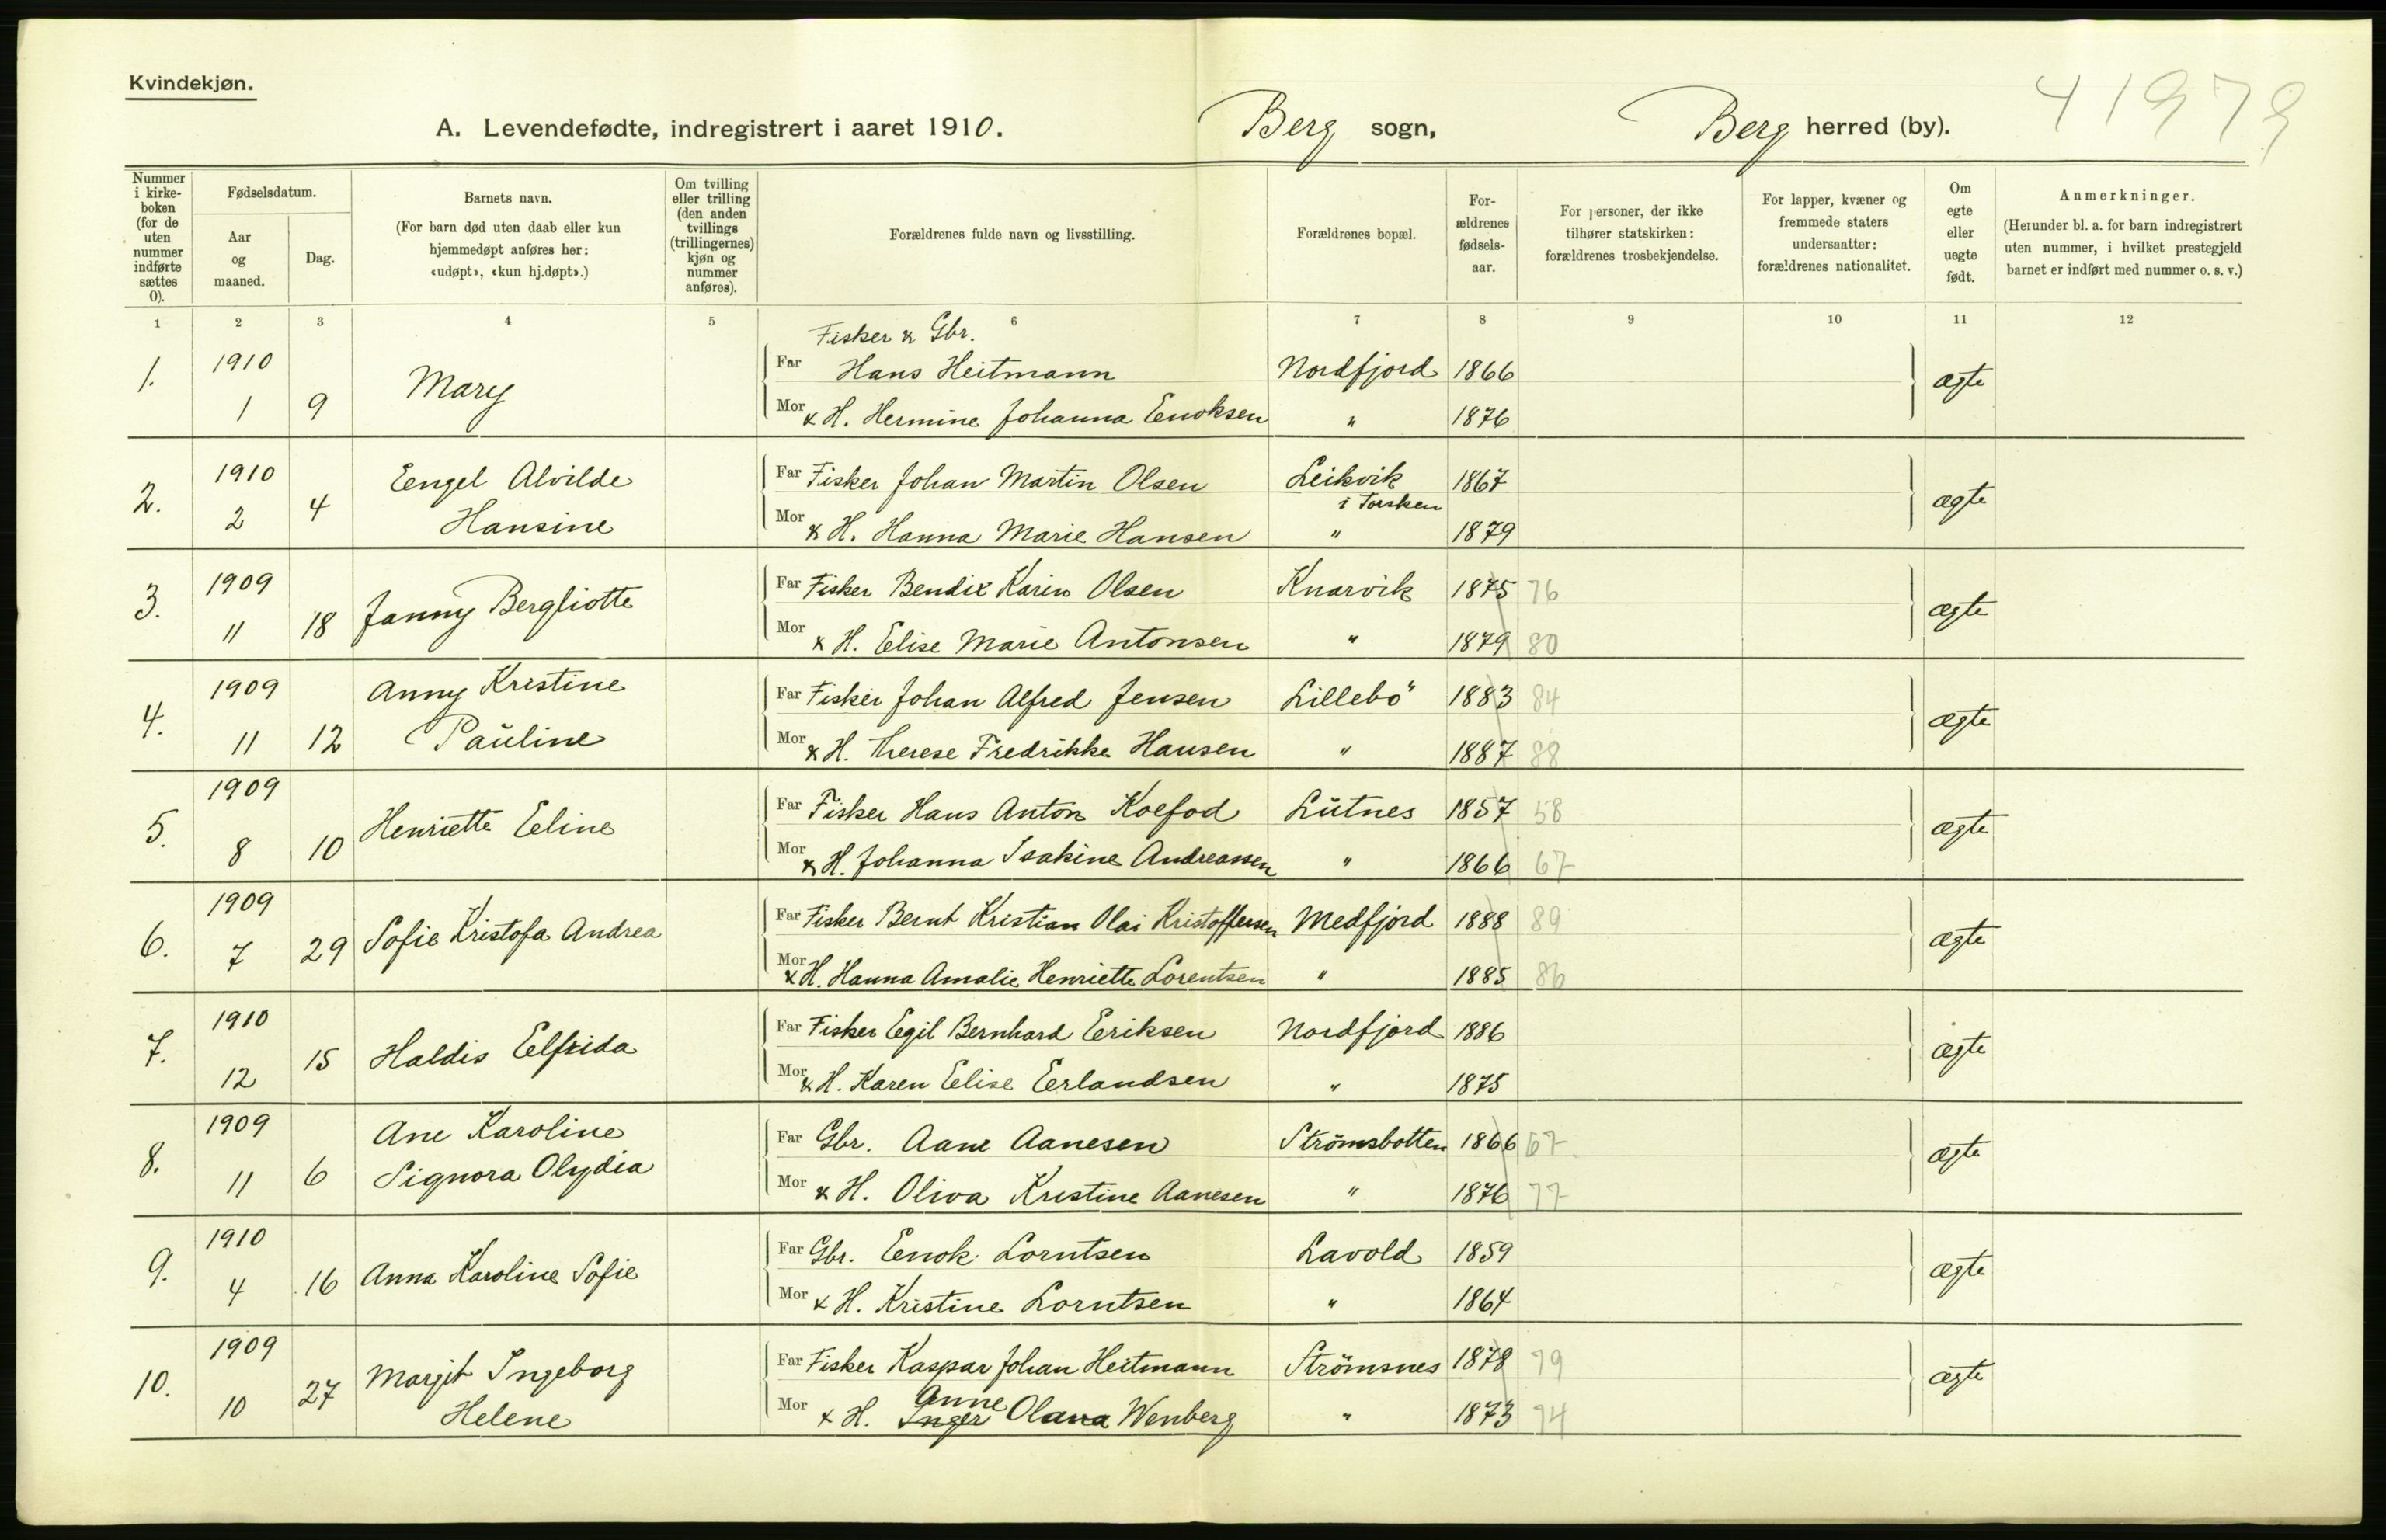 Kvindekjøn.
41979
A. Levendefødte, indregistrert i aaret 1910. Berg sogn, Berg herred (by).
Nummer i kirke-boken (for de uten nummer indførte sættes 0).
Fødselsdatum.
Aar og maaned.
Dag.
Barnets navn.
(For barn død uten daab eller kun hjemmedøpt anføres her: «udøpt», «kun hj.døpt».)
Om tvilling eller trilling (den anden tvillings (trillingernes) kjøn og nummer anføres).
Forældrenes fulde navn og livsstilling.
Forældrenes bopæl.
For-ældrenes fødsels-aar.
For personer, der ikke tilhører statskirken: forældrenes trosbekjendelse.
For lapper, kvæner og fremmede staters undersaatter: forældrenes nationalitet.
Om egte eller uegte født.
Anmerkninger.
(Herunder bl. a. for barn indregistrert uten nummer, i hvilket prestegjeld barnet er indført med nummer o. s. v.)
1 2 3 4 5 6 7 8 9 10 11 12
Fisker & Gbr.
1. 1910 Mary Far Hans Heitmann Nordfjord 1866 ægte
1 9 Mor & H. Hermine Johanna Enoksen " 1876
2. 1910 Eengel Alvilde Far Fisker Johan Martin Olsen Leikvik i Torsken 1867 ægte
2 4 Hansine Mor & H. Hanna Marie Hansen " 1879
3. 1909 Janny Bergliotte Far Fisker Bendix Karin Olsen Knarvik 1875 76 ægte
11 18 Mor & H. Elise Marie Antonsen " 1879 80
4. 1909 Anny Kristine Far Fisker Johan Alfred Jensen Lillebö 1883 84 ægte
11 12 Pauline Mor & H. Therese Fredrikke Hansen " 1887 88
5. 1909 Henriette Eeline Far Fisker Hans Anton Koefod Lutnes 1857 58 ægte
8 10 Mor & H. Johanna Isakine Andreassen " 1866 67
6. 1909 Sofie Kristofa Andrea Far Fisker Bernt Kristian Olai Kristoffersen Medfjord 1888 89 ægte
7 29 Mor & H. Hanna Amalie Henriette Lorentsen " 1885 86
7. 1910 Haldis Eelfrida Far Fisker Egil Bernhard Eeriksen Nordfjord 1886 ægte
12 15 Mor & H. Karen Eelise Eerlandsen " 1875
8. 1909 Ane Karoline Far Gbr. Aane Aanesen Strömsbotten 1866 67 ægte
11 6 Signora Olydia Mor & H. Oliva Kristine Aanesen " 1876 77
9. 1910 Anna Karoline Sofie Far Gbr. Eenok Lorntsen Lavold 1859 ægte
4 16 Mor & H. Kristine Lorntsen " 1864
10. 1909 Margit Ingeborg Far Fisker Kaspar Johan Heitmann Strömsnes 1878 79 ægte
10 27 Helene Mor & H. Inger Anne Olava Wenberg " 1873 74